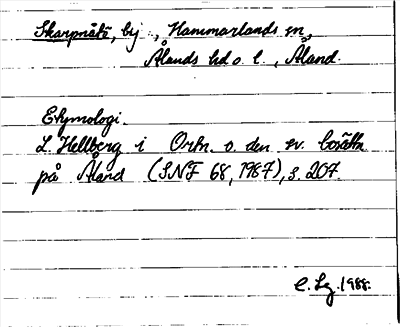 Skarpnåtö, by, Hammarlands sn,
Ålands hd o. l., Åland.
Etymologi.
L. Hellberg i Ortn. o. den sv. bosättn.
på Åland (SNF 68, 1987), s. 207.
1988.